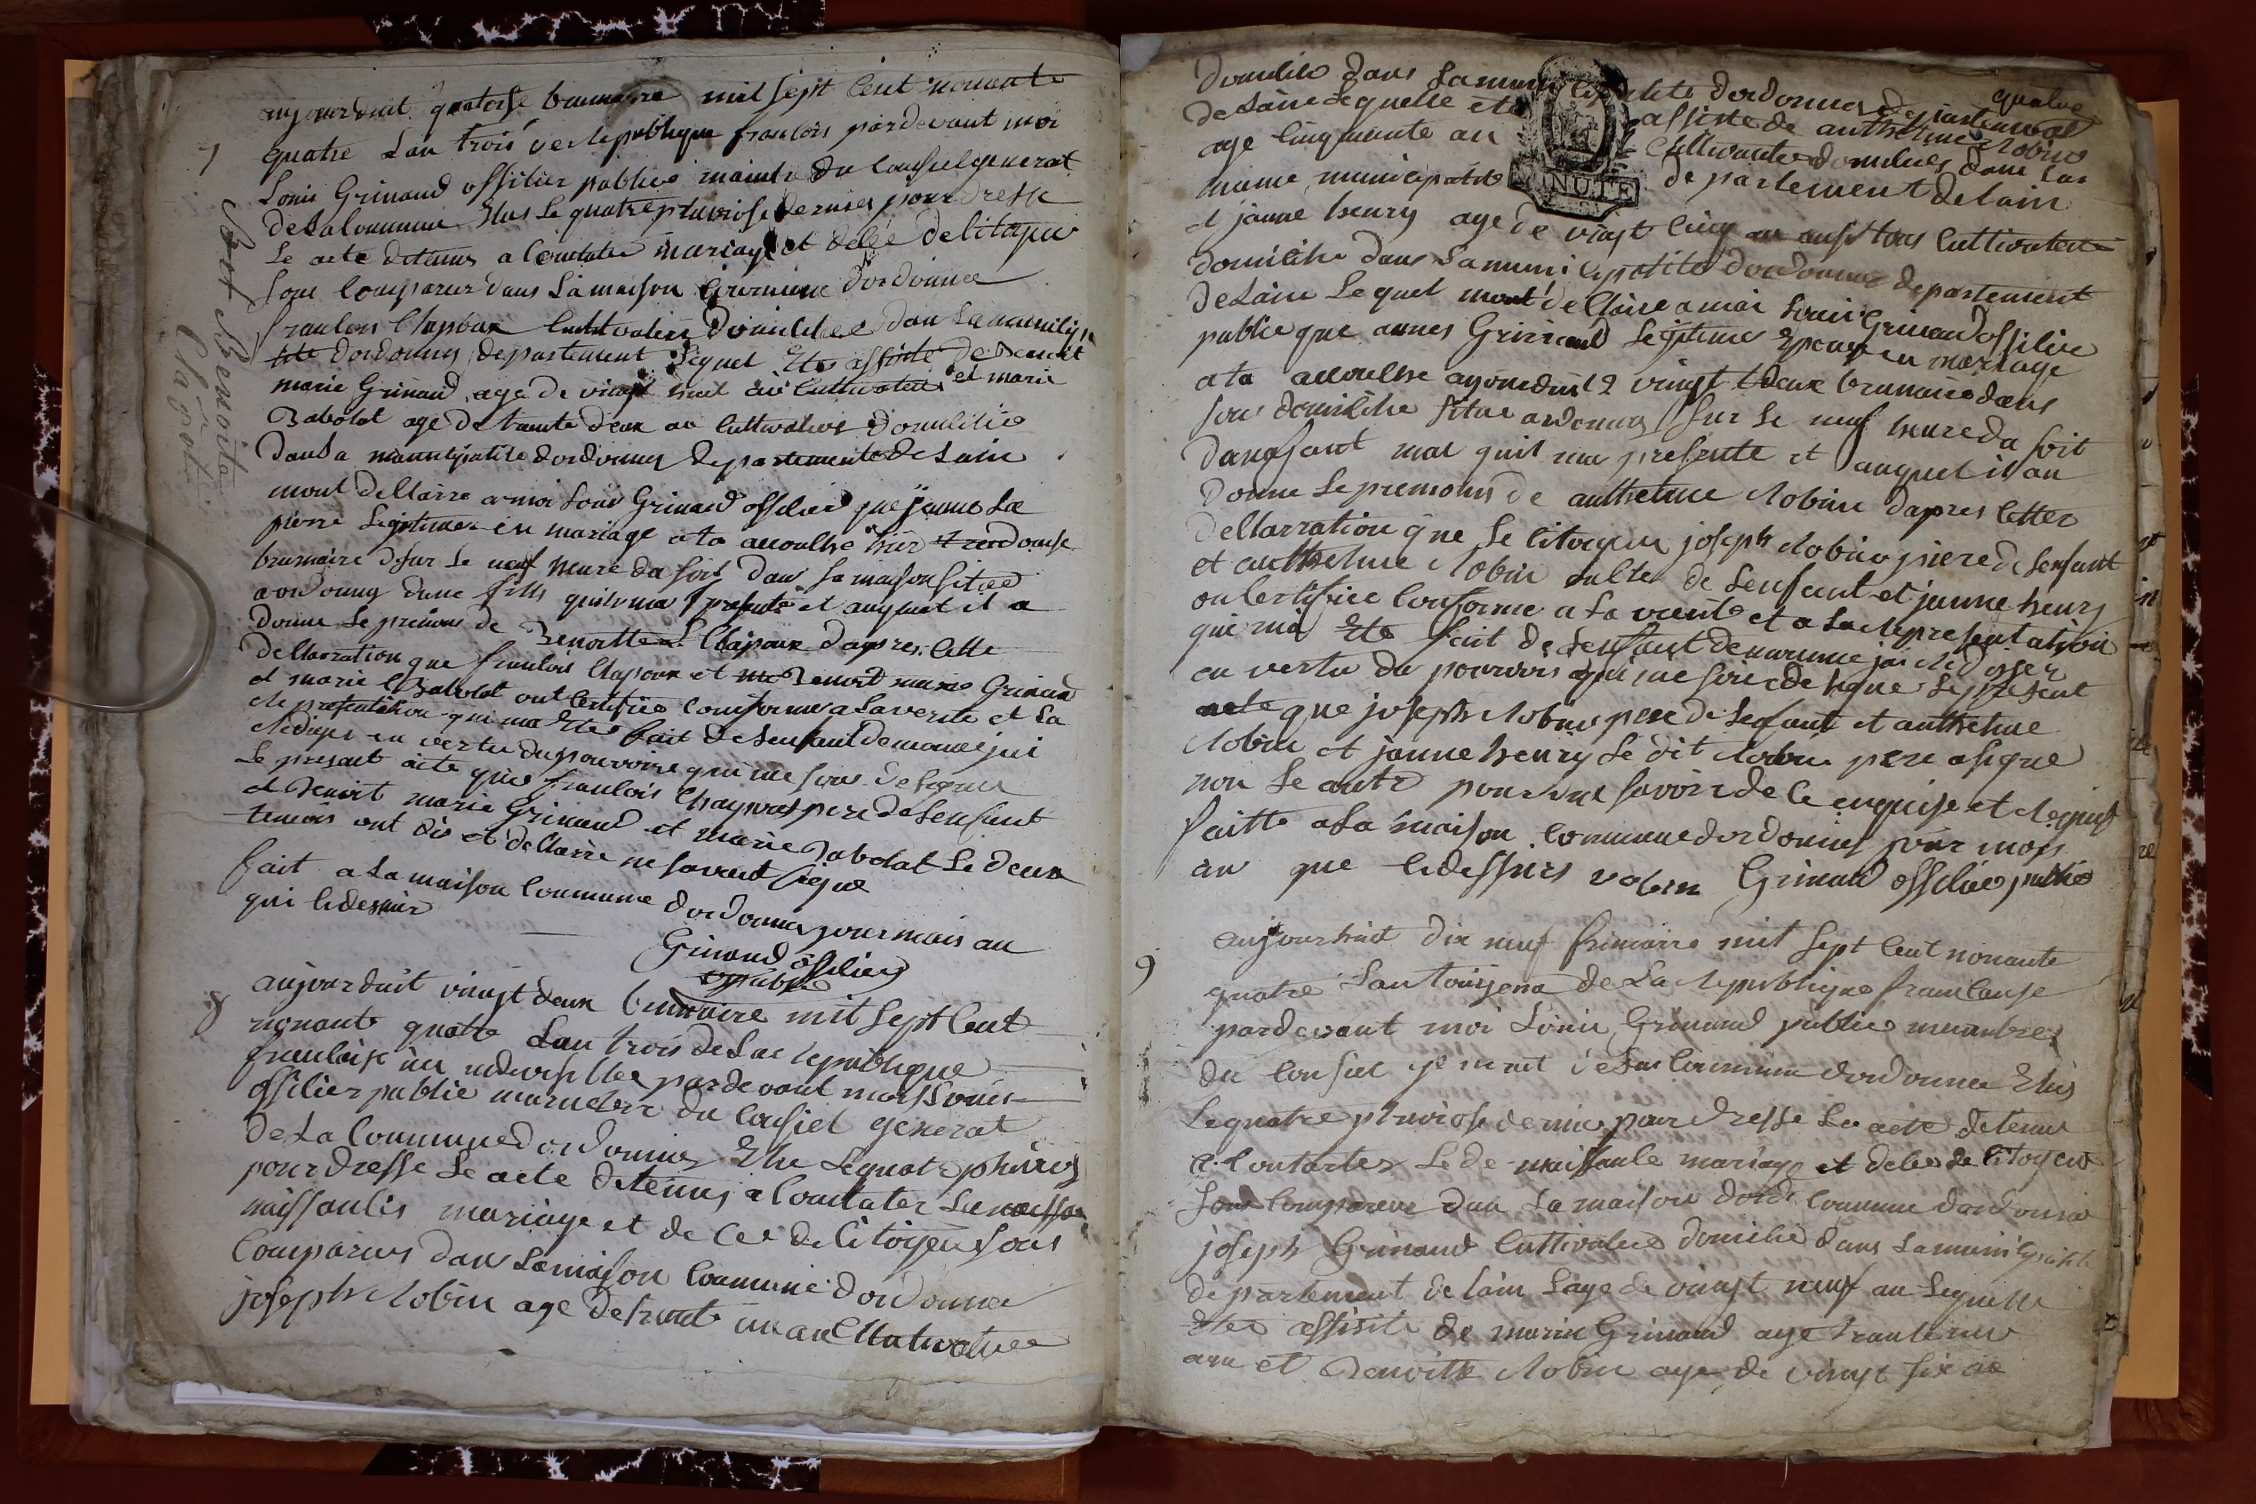 7
aujourduit quatorse brumaire mil sept cent nonante
quatre Lan trois de Republique francois pardevant moi
Louis Grinand offilier publics mambre du Conseil general
de La Commune Elus Le quatre pluviose dernier pour dresse
Le acte detenus a Constater mariage et deles de Citoyen
Sont Comparus dans La maison Commune dordonna
francois Chapoux Cultivateur domicilies dans La municip
lite dordonnas departement Lequel Ete assiste de Benoit
marie Grinand age de vingt huit an Cultivateur et marie
Babolat age de trante deux an Cultivateurs domicilies
Dans La municipalite dordonnas departemente de Lain
mont dellarre a moi Louis Grinand offilier que janne La
pierre Legitimes en mariage a ta accoulhe hier douse
brumaire sur Le neuf heure da soir dans sa maison sitee
a ordonnas dune fille quil ma presente et auquel il a
donne Le prenoms de Benoitte Chapoux dapres Cette
dellarration que francois Chapoux et Benoit marie Grinand
et marie Babolat ont Certifiee Conforme a La verite et La
Representation qui ma Ete fait de Lenfant denomme jai
Redige en vertu du pouvoire qui me sont delegues
Le presant acte que francois Chapoux pere de Lenfant
et Benoit marie Grinand et marie Babolat Le deux
temois ont dis et dellarre ne savent signe
fait a La maison Commune dordonnas jour mois an
qui Cidessus
Grinand offilier
public
Benoite
Chapou
8
aujourduit vingt deux brumaire mil sept Cent
nonante quatre Lan trois de La Republique
francaise un indivisible pardevant moi Louis
offilier public mambre du Consiel general
de La Commune dordonnas Elu Le quatre pluvios
pour dresse Le acte detenus a Constater La naissa
naissanles mariage et de Ces de Citoyen sont
Comparus dans La maison Commune dordonna
joseph Robin age de trante un an Cultivateur
domicilies dans La municipalite dordonnas departement
de Laine Lequelle ete assiste de anthelme Robin
age Cinquante an Cultivateur domicilies dans La
meme municipalite departement de Lain
MINUTE
et janne henry age de vingt Cinq an ausi tous Cultivateur
domicilie dans La municipalite dordonnas departement
de Laine Lequel mont dellaire a moi Louis Grinand offilier
public que annes Grinand Legitime Epouse en mariage
a ta accoulhe aujourduit 2 vingt deux brumaire dans
sou domicilie situe a ordonnas sur Le neuf heure da soit
dunafant mal quil ma presente et auquel il an
donne Le prenoms de anthelme Robin dapres Cette
dellarration que Le Citoyen joseph Robin piere de Lenfant
et anthelme Robin onlte de Lenfant et janne henry
on Certifiee Conforme a La verite et a La Representation
qui ma Ete fait de Lenfant denomme jai Rediger
en vertu du pouvoirs qui me soit delegue Le present
acte que joseph Robin pere de Lenfant et anthelme
Robin et janne henry Le dit Robin pere asigne
non Le autre pour ne savoir de Ce enquise et Requis
faitte a La maison Commune dordonnas jour mois
an que Cidessus Robin Grinand offilier public
9
aujourhuit dix neuf frimaire mil sept Cent nonante
quatre Lan troisjeme de La Republique francaise
pardevant moi Louis Grinand public manbres
du Consiel general de La Commune dordonna Elus
Le quatre pluviose dernier pour dresse Le acte detenus
a Contates Le de naissanle mariage et deles de Citoyen
sont Comparue dans La maison Commune dordonna
joseph Grinand Cultivateur domicilie dans La municipalite
departement de Lain Lage de vingt neuf an Lequelle
Etes assiste de marie Grinand age trante neuf
ans et Benoitte Robin age de vingt six an